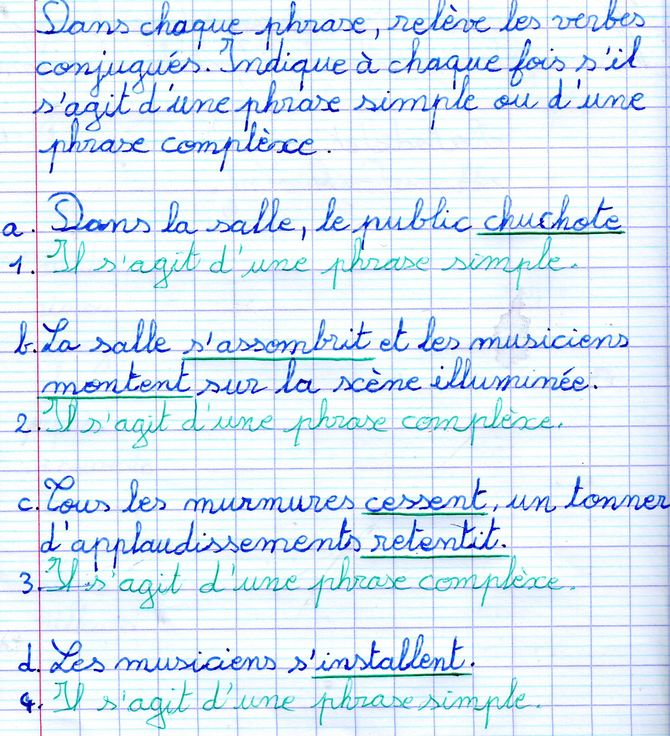 Dans chaque phrase, relève les verbes
conjugués. Indique à chaque fois s'il
s'agit d'une phrase simple ou d'une
phrase complèxe.
a. Dans la salle, le public chuchote
1. Il s'agit d'une phrase simple.
b. La salle s'assombrit et les musiciens
montent sur la scène illuminée.
2. Il s'agit d'une phrase complèxe.
c. Tous les murmures cessent, un tonner
d'applaudissements retentit.
3. Il s'agit d'une phrase complèxe.
d. Les musiciens s'installent.
4. Il s'agit d'une phrase simple.